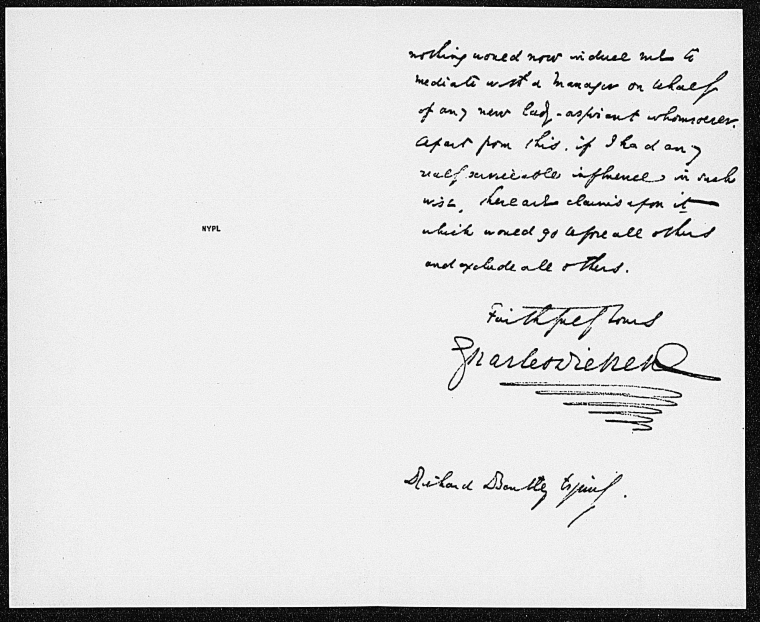 NYPL
nothing would now induce me to
mediate with a Manager on behalf
of any new lady-aspirant whomsoever.
Apart from this, if I had any
really serviceable influence in such
wise, there are claims upon it
which would go before all others
and exclude all others.
Faithfully Yours
Charles Dickens
Richard Bentley Esquire.